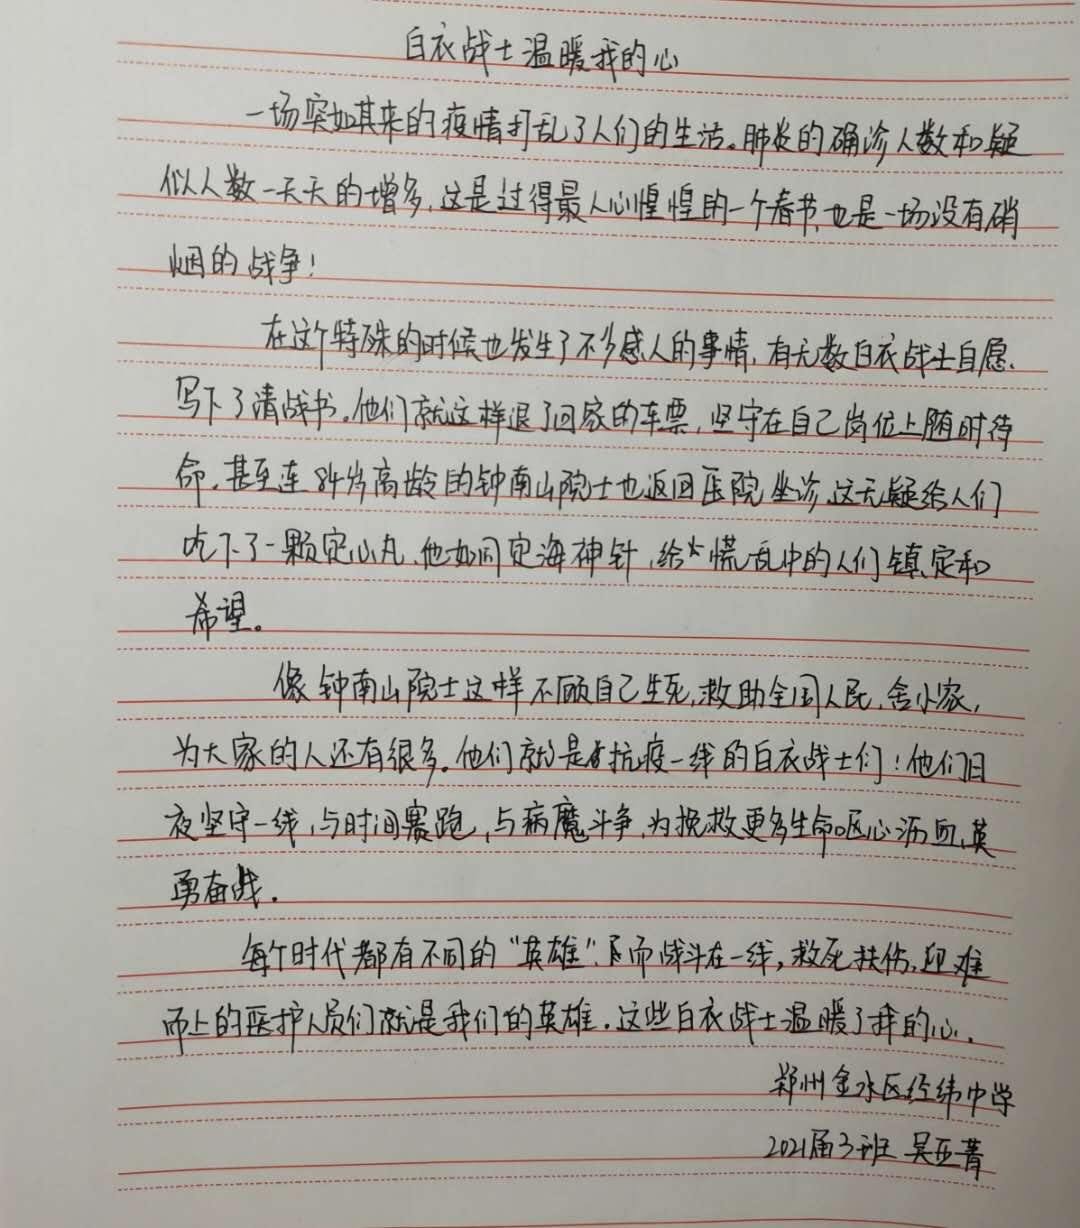 白衣战士温暖我的心
一场突如其来的疫情打乱了人们的生活。肺炎的确诊人数和疑
似人数一天天的增多,这是过得最人心惶惶的一个春节,也是一场没有硝
烟的战争!
在这个特殊的时候也发生了不少感人的事情,有无数白衣战士自愿
写下了请战书。他们就这样退了回家的车票,坚守在自己岗位上随时待
命,甚至连84岁高龄的钟南山院士也返回医院坐诊,这无疑给人们
吃下了一颗定心丸,他如同定海神针,给慌乱中的人们镇定和
希望。
像钟南山院士这样不顾自己生死,救助全国人民,舍小家,
为大家的人还有很多。他们就是抗疫一线的白衣战士们!他们日
夜坚守一线,与时间赛跑,与病魔斗争,为挽救更多生命呕心沥血,英
勇奋战.
每个时代都有不同的“英雄”,而战斗在一线,救死扶伤,迎难
而上的医护人员们就是我们的英雄.这些白衣战士温暖了我的心.
郑州金水区经纬中学
2021届3班 吴亚菁